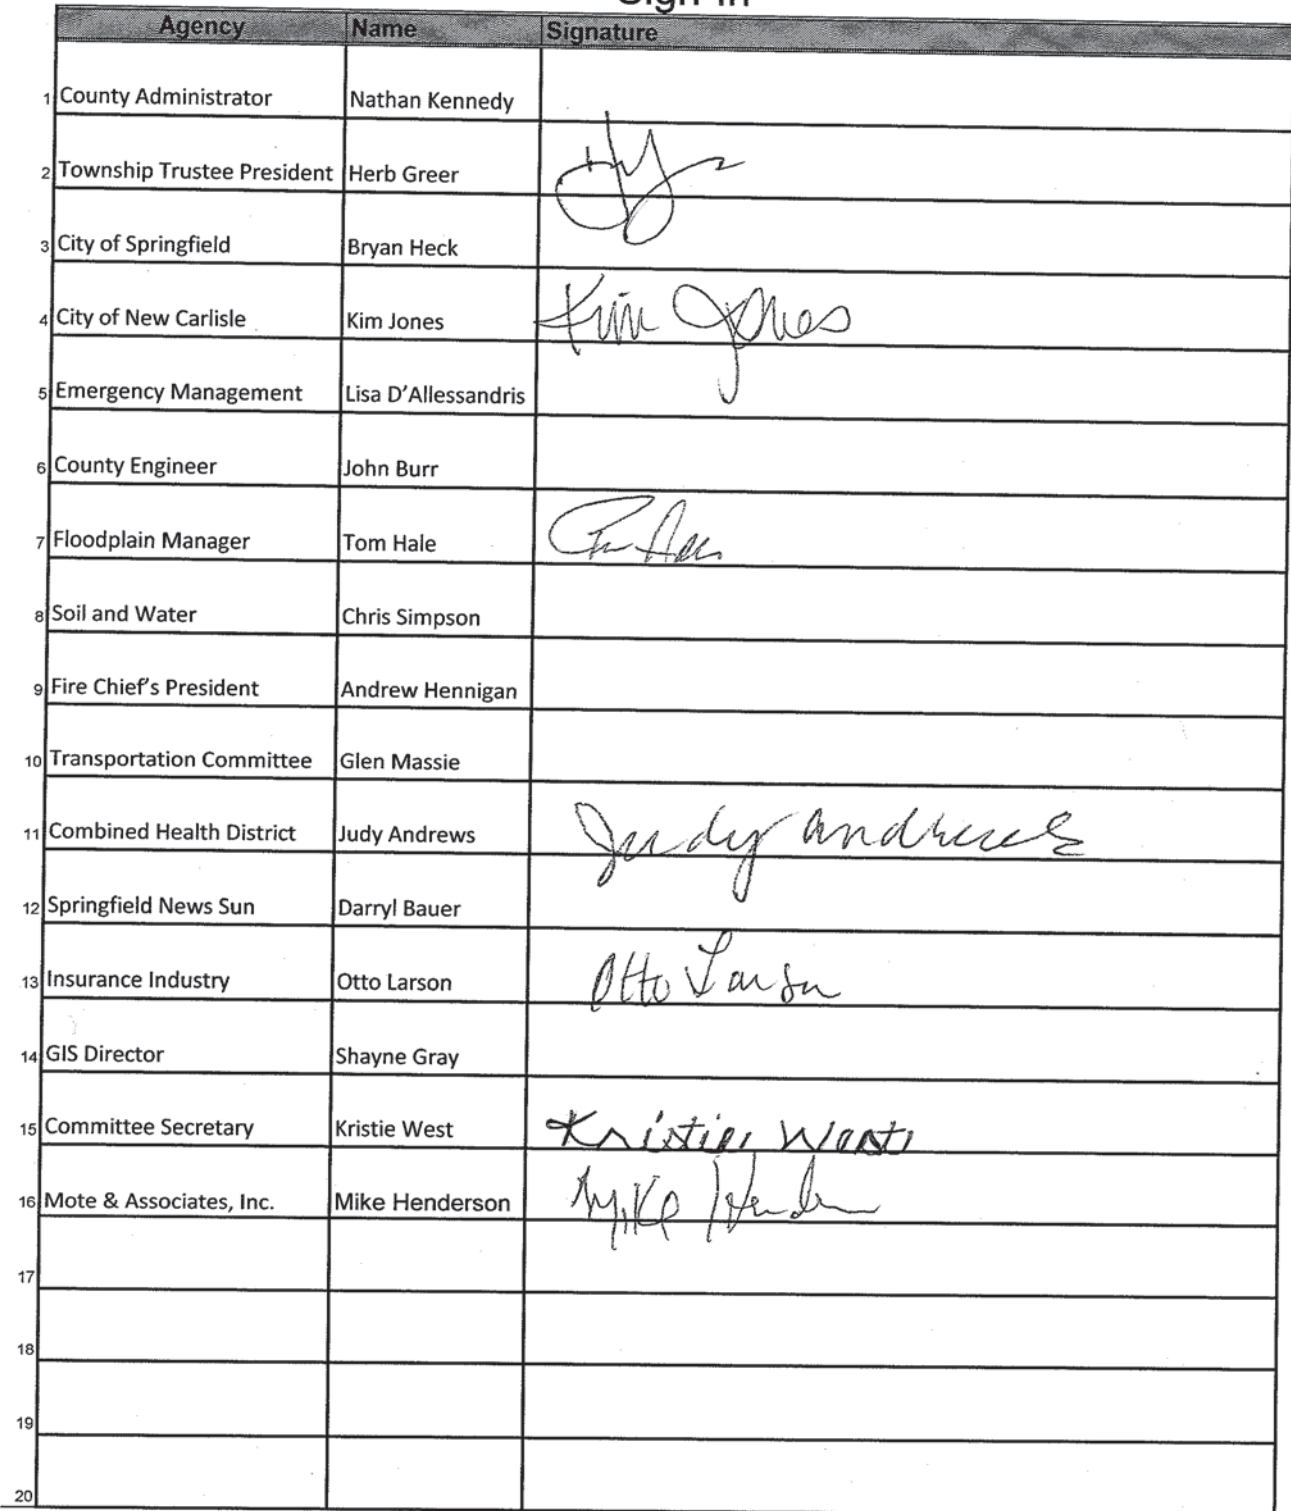 Sign-In
Agency Name Signature
1 County Administrator Nathan Kennedy
2 Township Trustee President Herb Greer
3 City of Springfield Bryan Heck
4 City of New Carlisle Kim Jones Kim Jones
5 Emergency Management Lisa D'Allessandris
6 County Engineer John Burr
7 Floodplain Manager Tom Hale
8 Soil and Water Chris Simpson
9 Fire Chief's President Andrew Hennigan
10 Transportation Committee Glen Massie
11 Combined Health District Judy Andrews Judy Andrews
12 Springfield News Sun Darryl Bauer
13 Insurance Industry Otto Larson Otto Larson
14 GIS Director Shayne Gray
15 Committee Secretary Kristie West Kristie West
16 Mote & Associates, Inc. Mike Henderson Mike
17
18
19
20